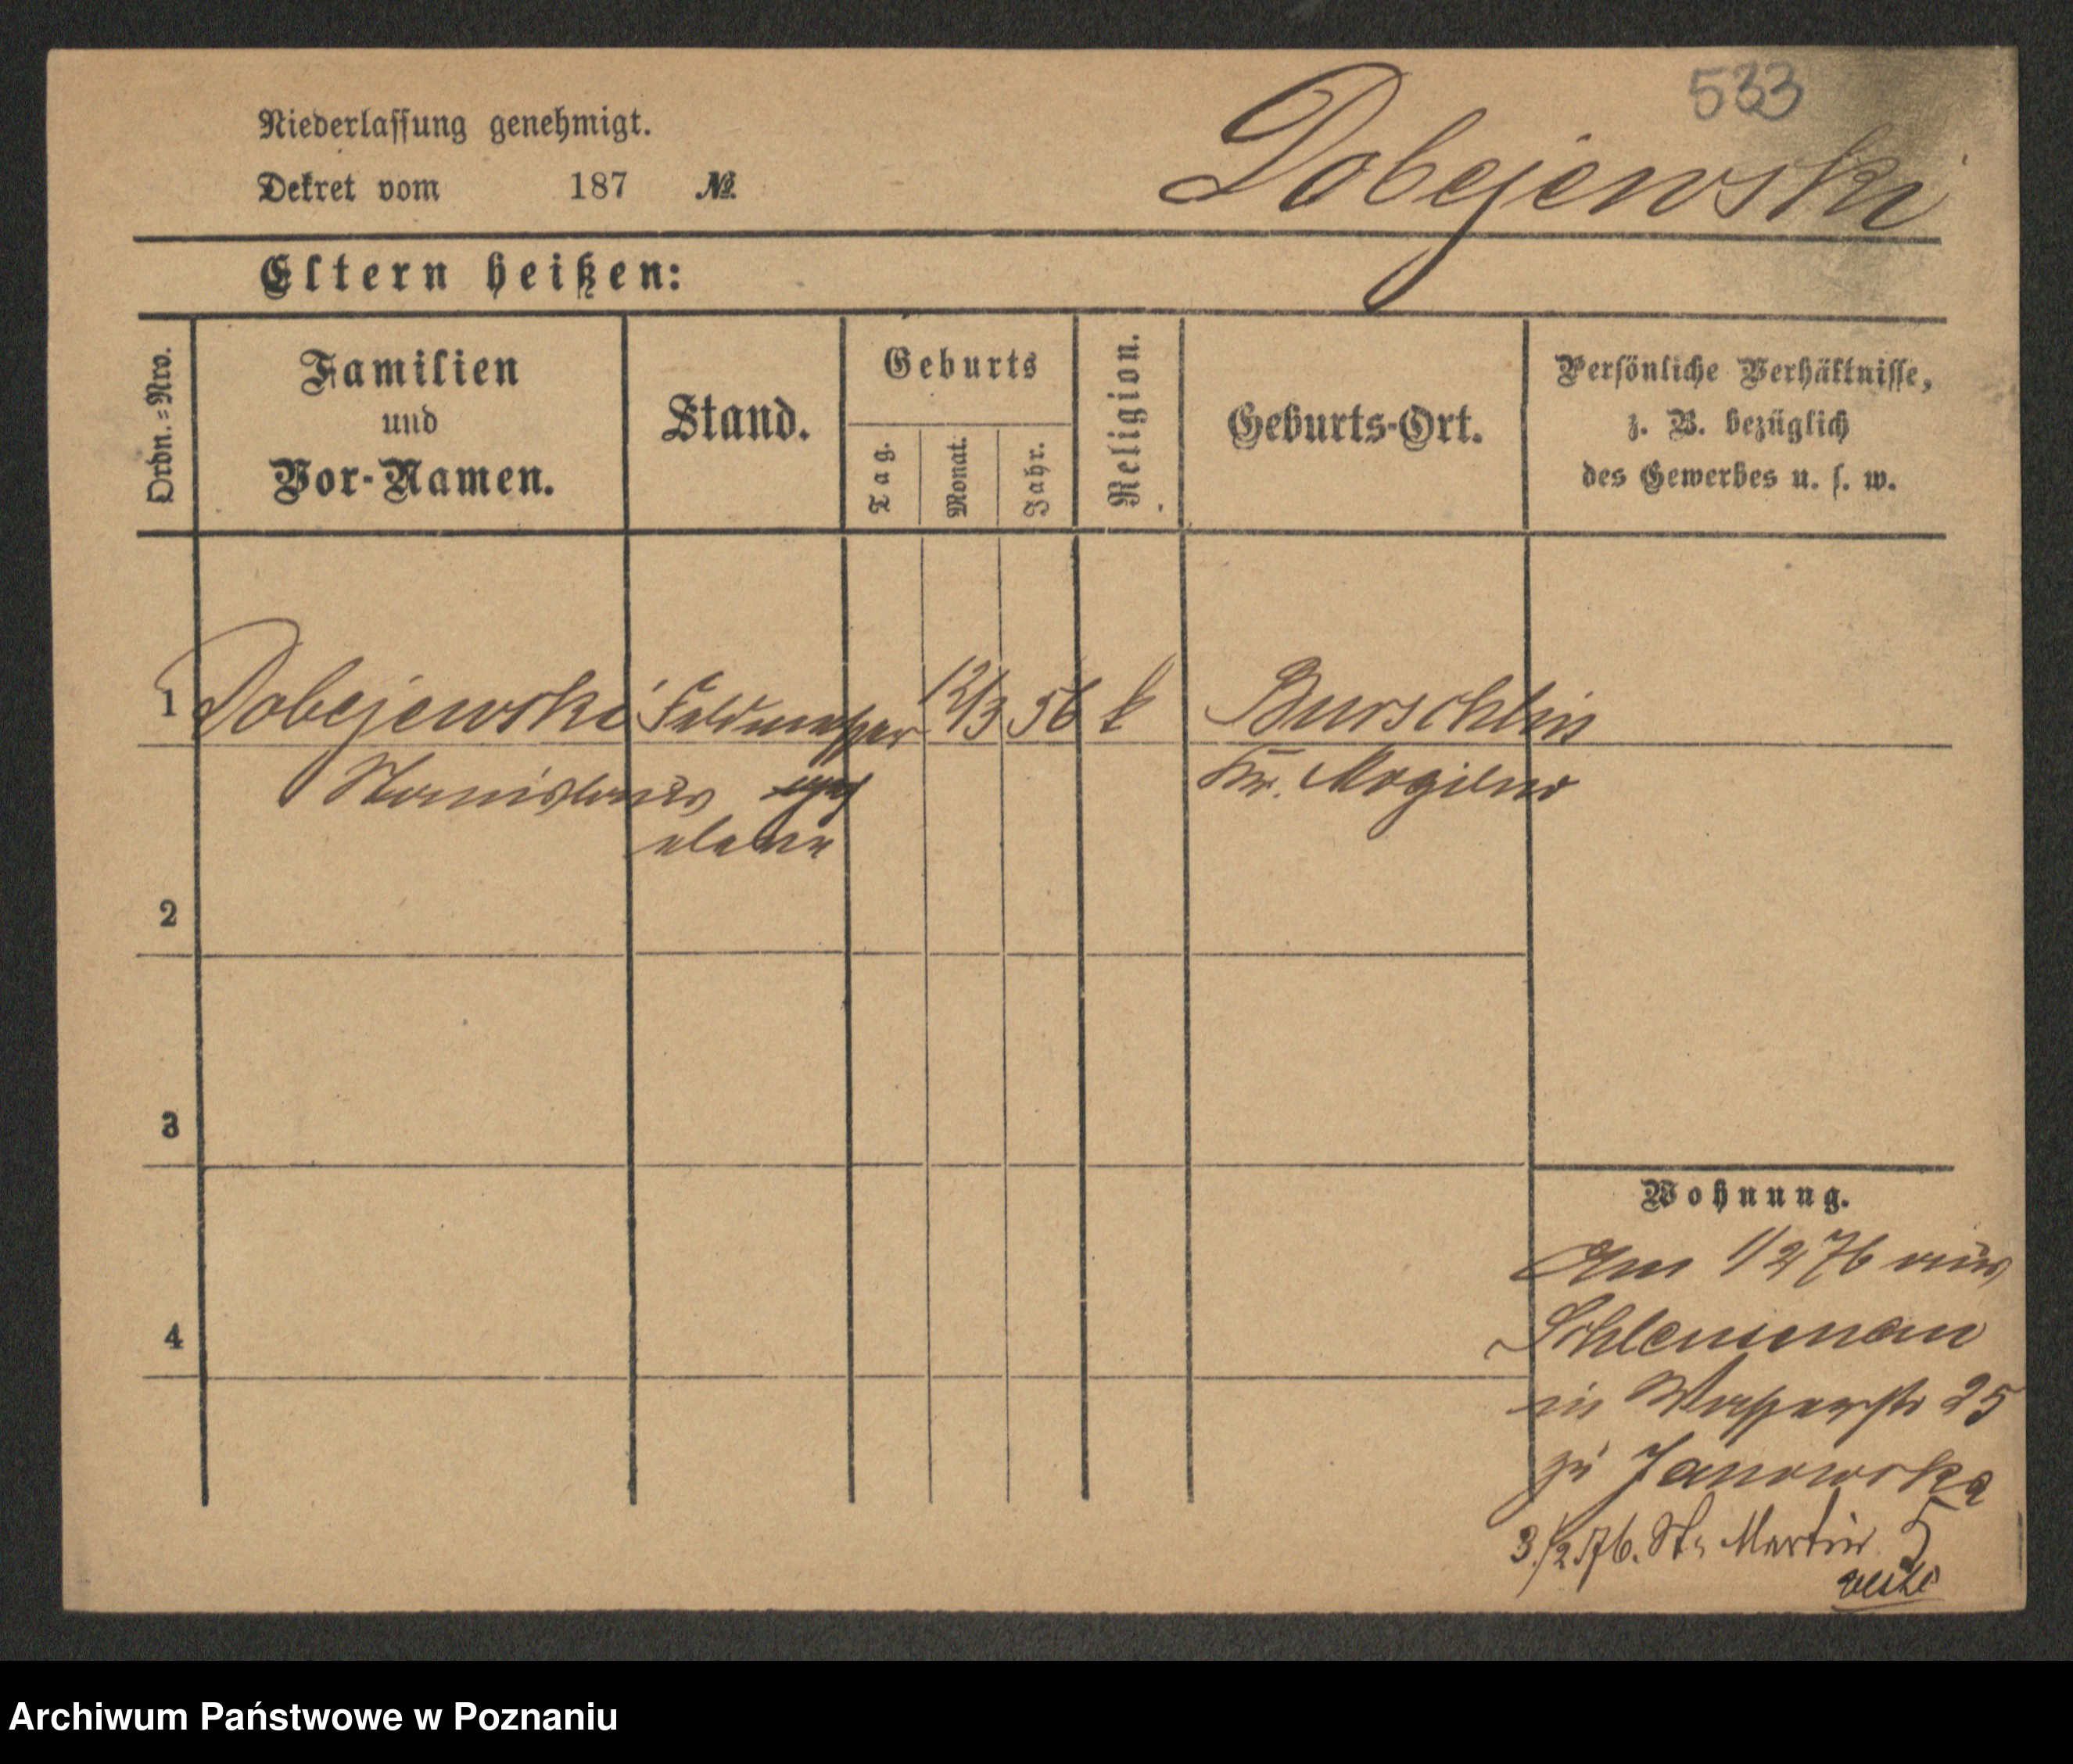 533
Niederlassung genehmigt.
Dobejewski
Dekret vom 187 №
Eltern heißen:
Ordn.=Nro.
Familien
und
Vor-Namen.
Stand.
Geburts
Tag.
Monat.
Jahr.
Religion.
Geburts-Ort.
Persönliche Verhältnisse,
z. B. bezüglich
des Gewerbes u. s. w.
1 Dobejewski Feldmesser 12/3 56 k Burschlin
Stanislaus eleve Kr. Mogilno
2
3
4
Wohnung.
Am 1/2 76 aus
in 25
zu Janowska
3./2.76. St. Martin 5
Archiwum Państwowe w Poznaniu